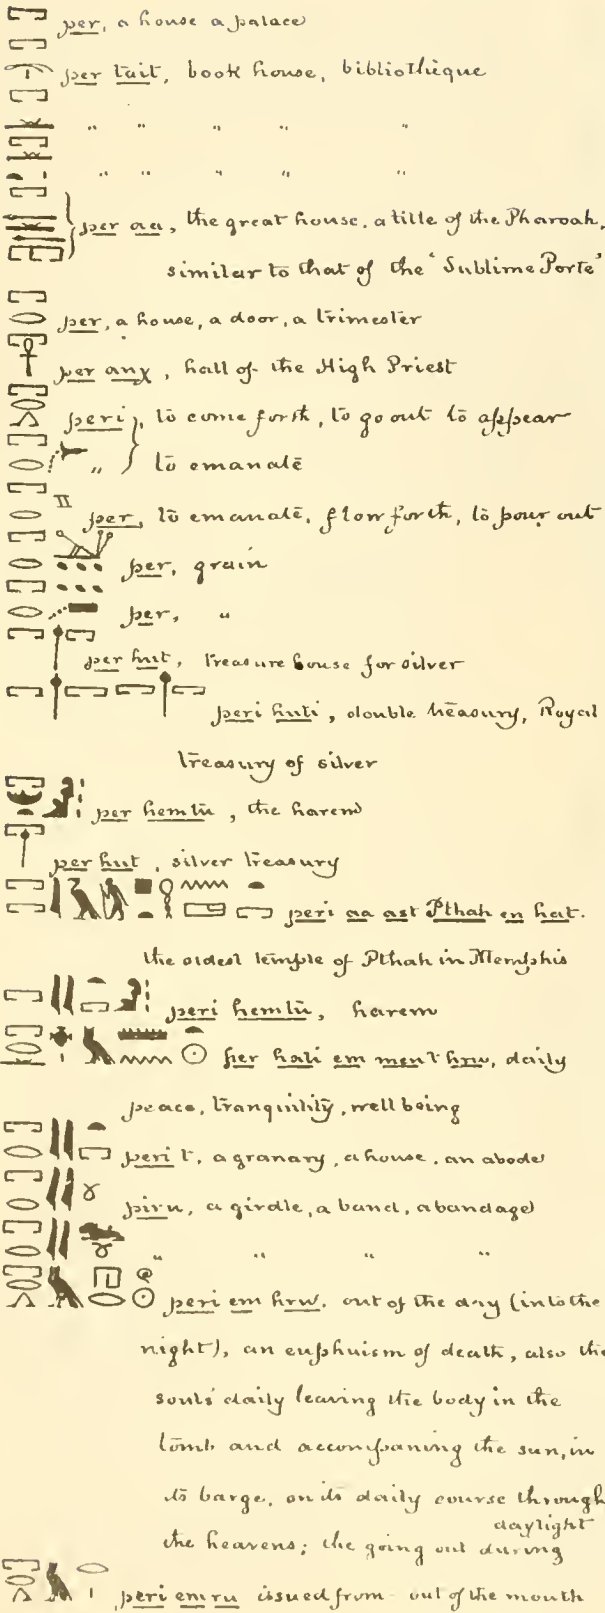 per, a house a palace
per tait, book house, bibliothèque
" " " " "
" " " " "
per aa, the great house, a title of the Pharoah,
similar to that of the 'Sublime Porte'
per, a house, a door, a trimester
per anχ, hall of the High Priest
peri, to come forth, to go out to appear
" to emanate
per, to emanate, flow forth, to pour out
per, grain
per, "
per hut, treasure house for silver
peri huti, double treasury, Royal
treasury of silver
per hemtu, the harem
per hut, silver treasury
peri aa ast Pthah en hat.
the oldest temple of Pthah in Memphis
peri hemtu, harem
per hati em ment hrw, daily
peace, tranquility, well being
peri t, a granary, a house, an abode
piru, a girdle, a band, a bandage
" " " "
peri em hrw. out of the day (into the
night), an euphuism of death, also the
souls' daily leaving the body in the
tomb and accompaning the sun, in
its barge, on its daily course through
daylight
the heavens; the going out during
peri em ru issued from - out of the mouth